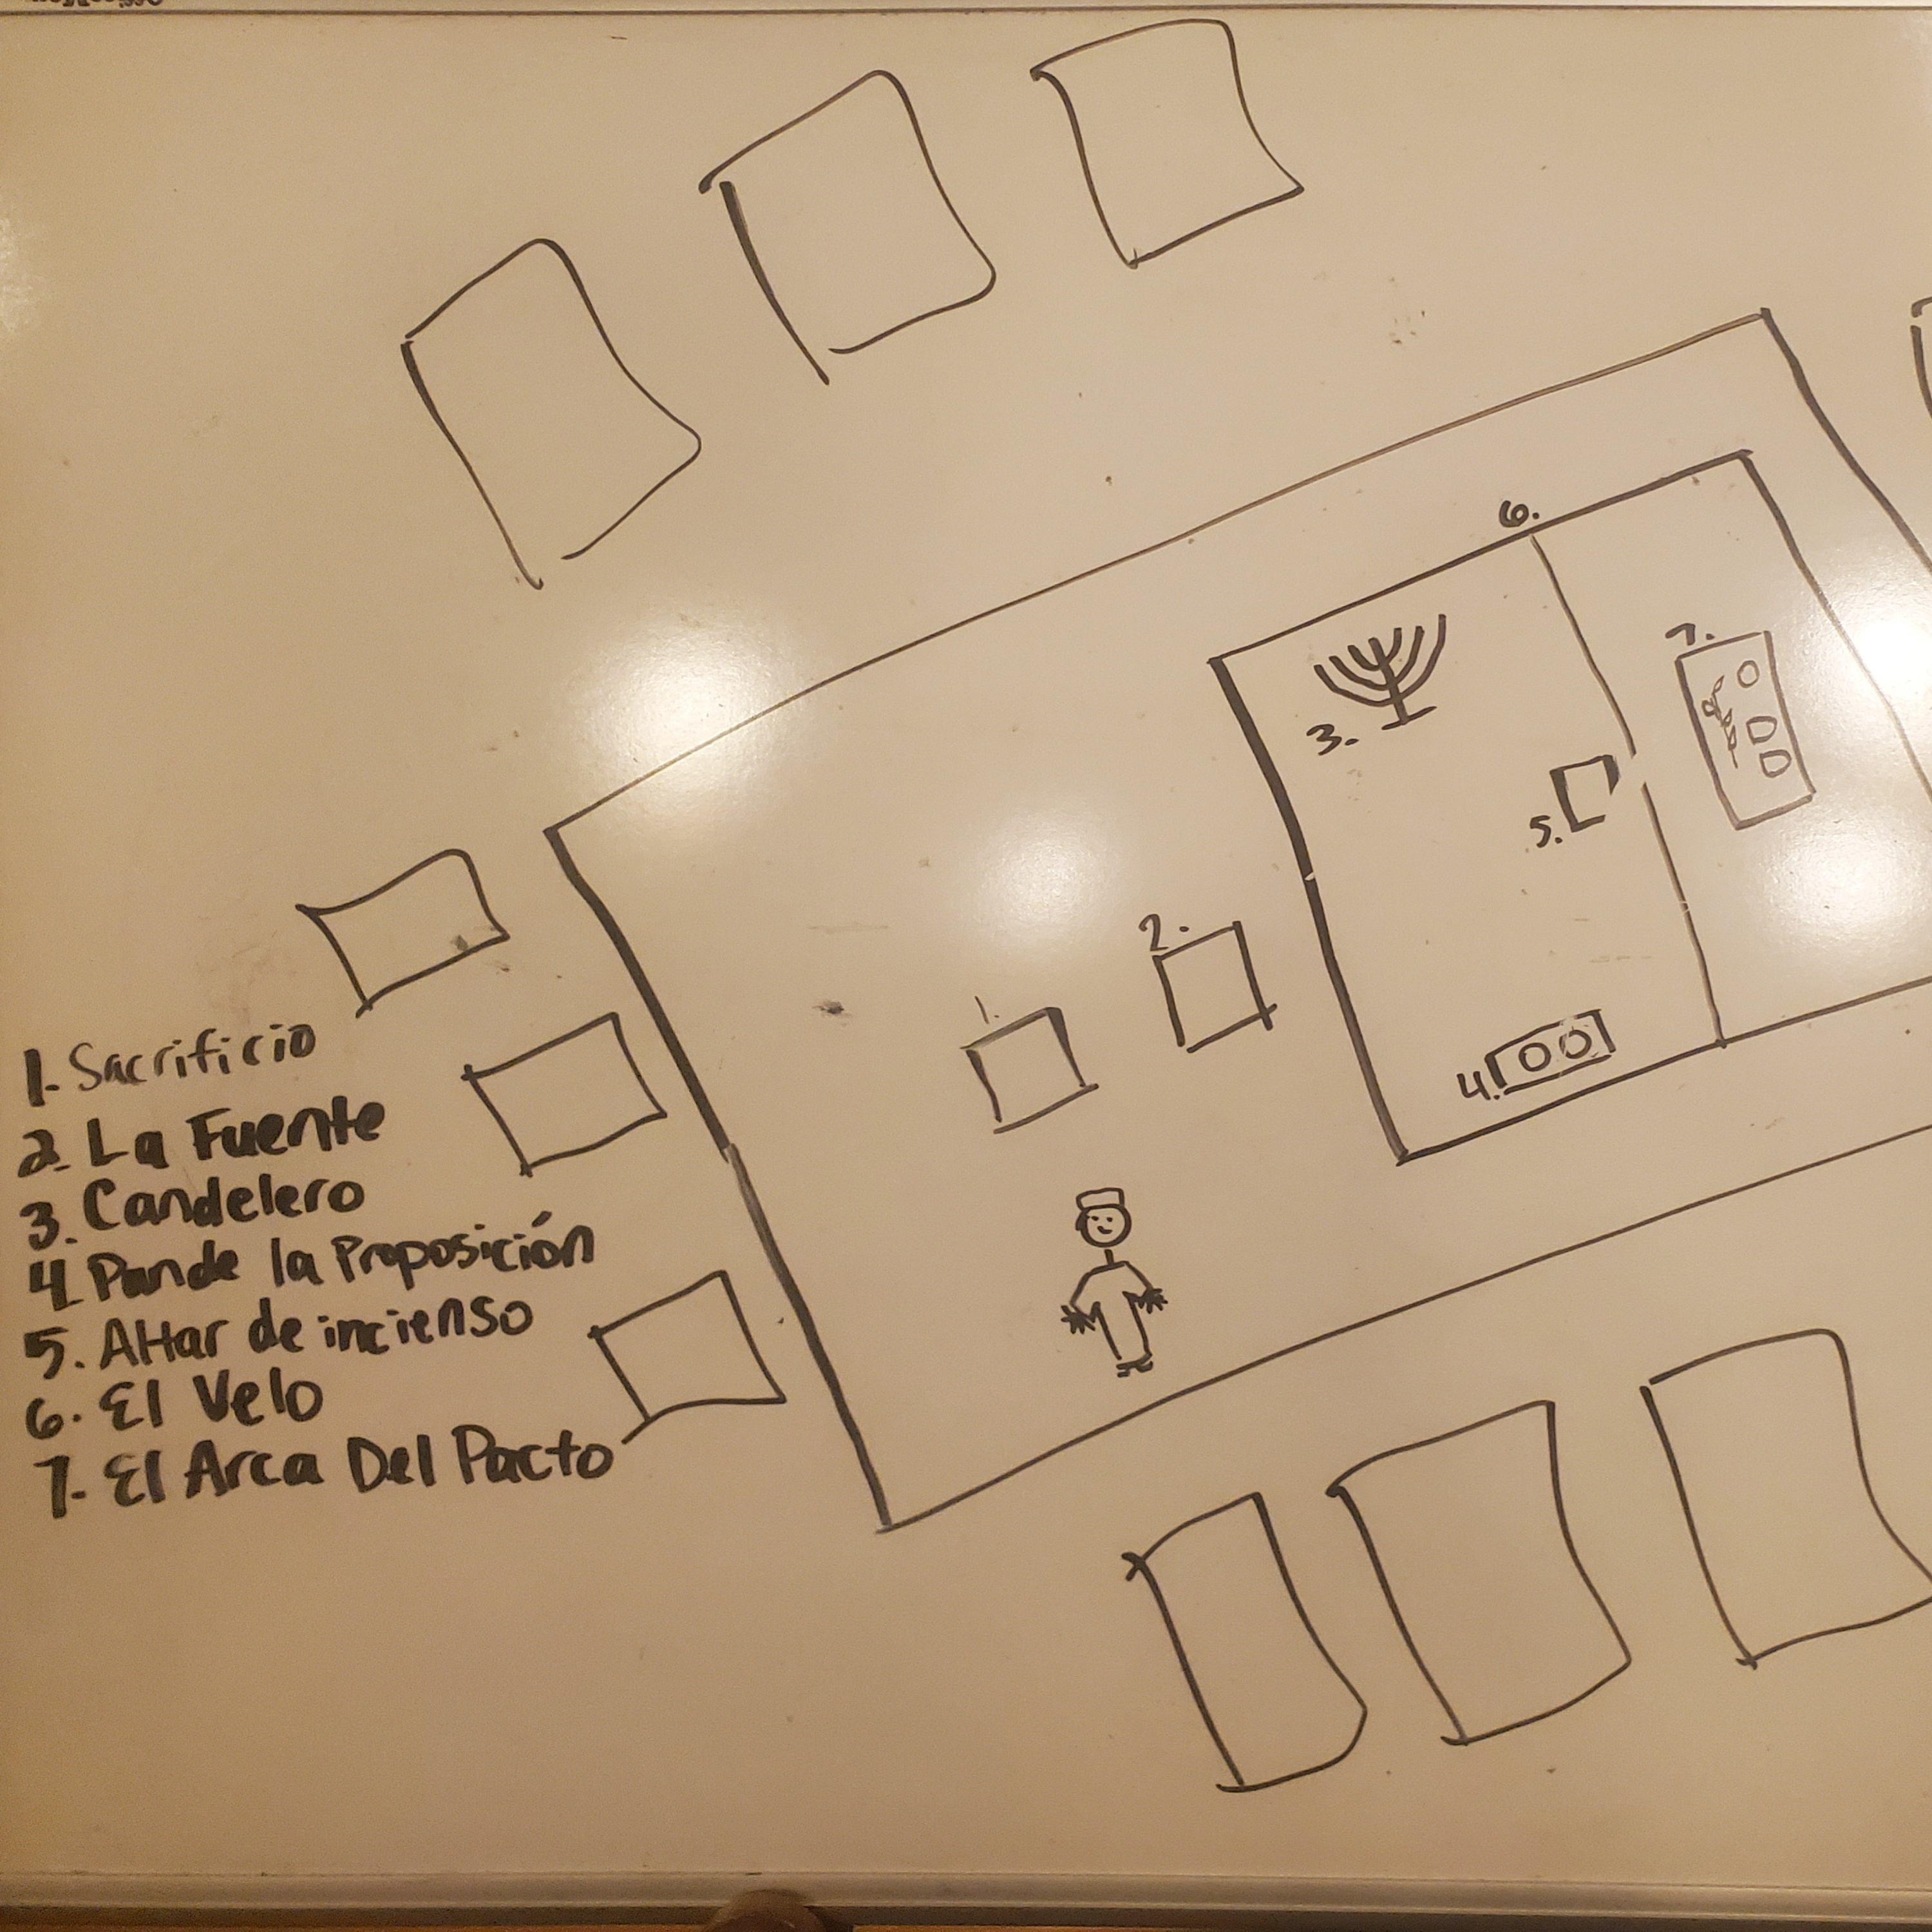 1. Sacrificio
2. La Fuente
3. Candelero
4. Pan de la Proposición
5. Altar de incienso
6. El Velo
7. El Arca Del Pacto
6.
7.
3.
5.
2.
1.
4.